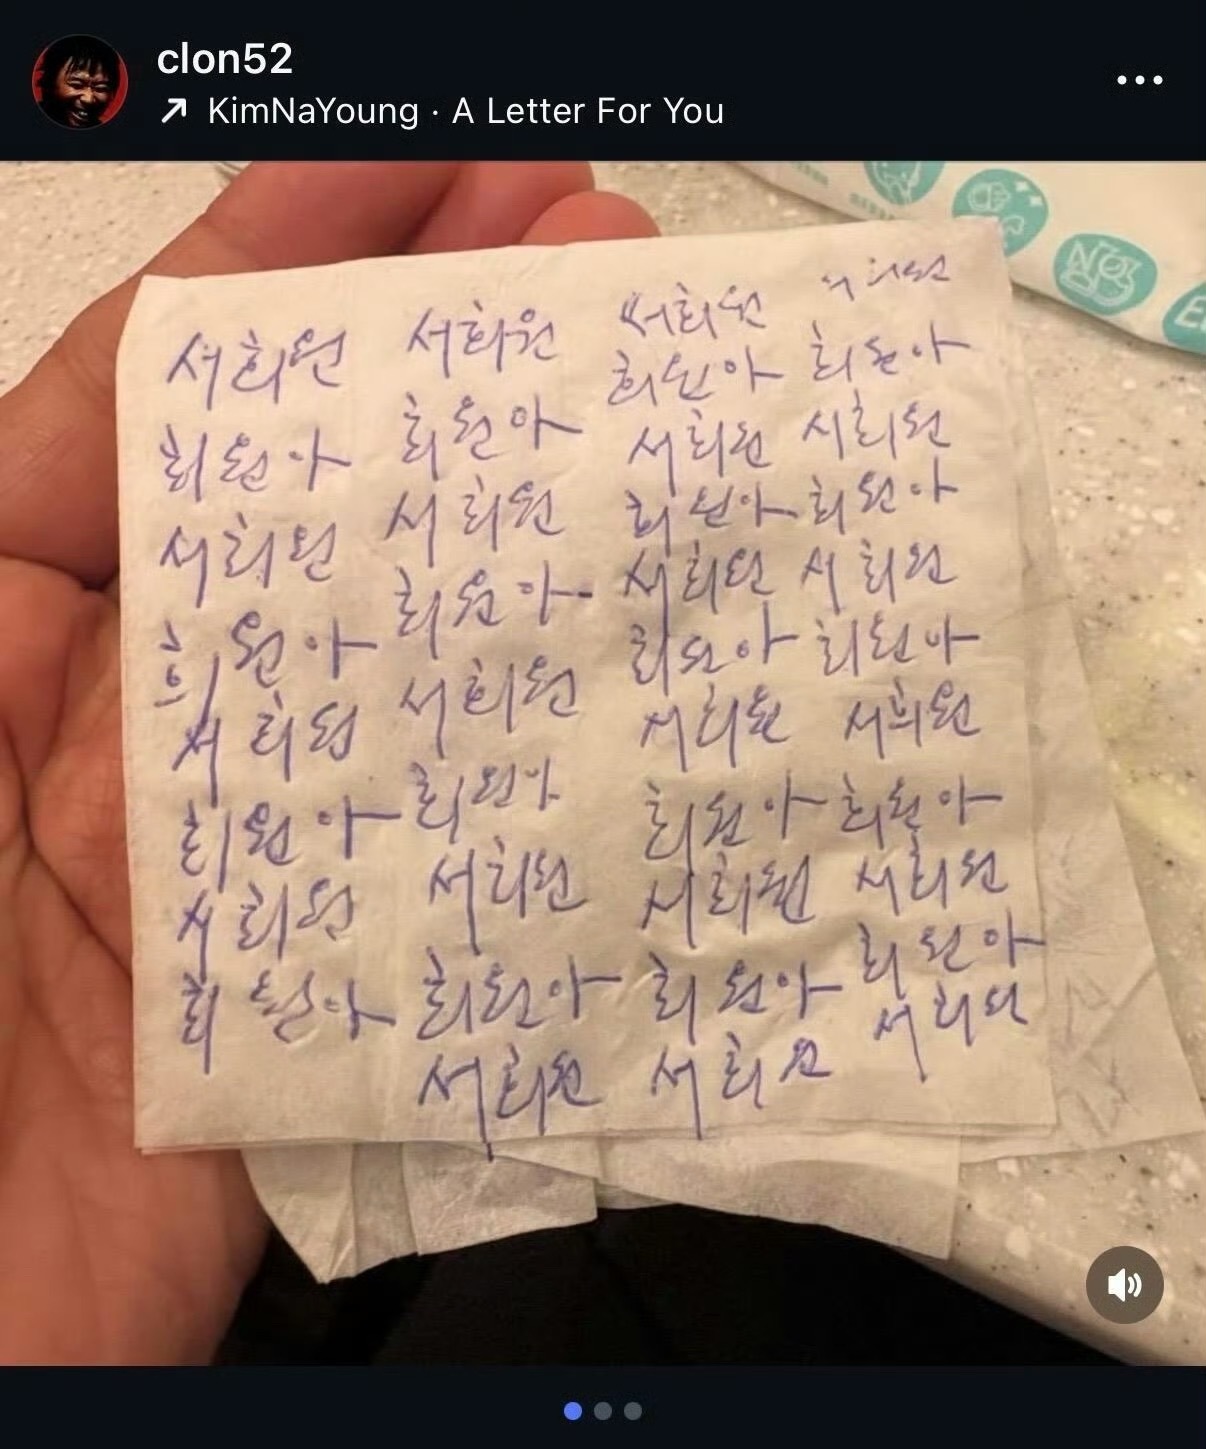 clon52
KimNaYoung · A Letter For You
서희원
희원아
서희원
희원아
서희원
희원아
서희원
희원아
서희원
희원아
서희원
희원아
서희원
희원아
서희원
희원아
서희원
서희원
희원아
서희원
희원아
서희원
희원아
서희원
희원아
서희원
희원아
서희원
서희원
희원아
서희원
희원아
서희원
희원아
서희원
희원아
서희원
희원아
서희원
NO